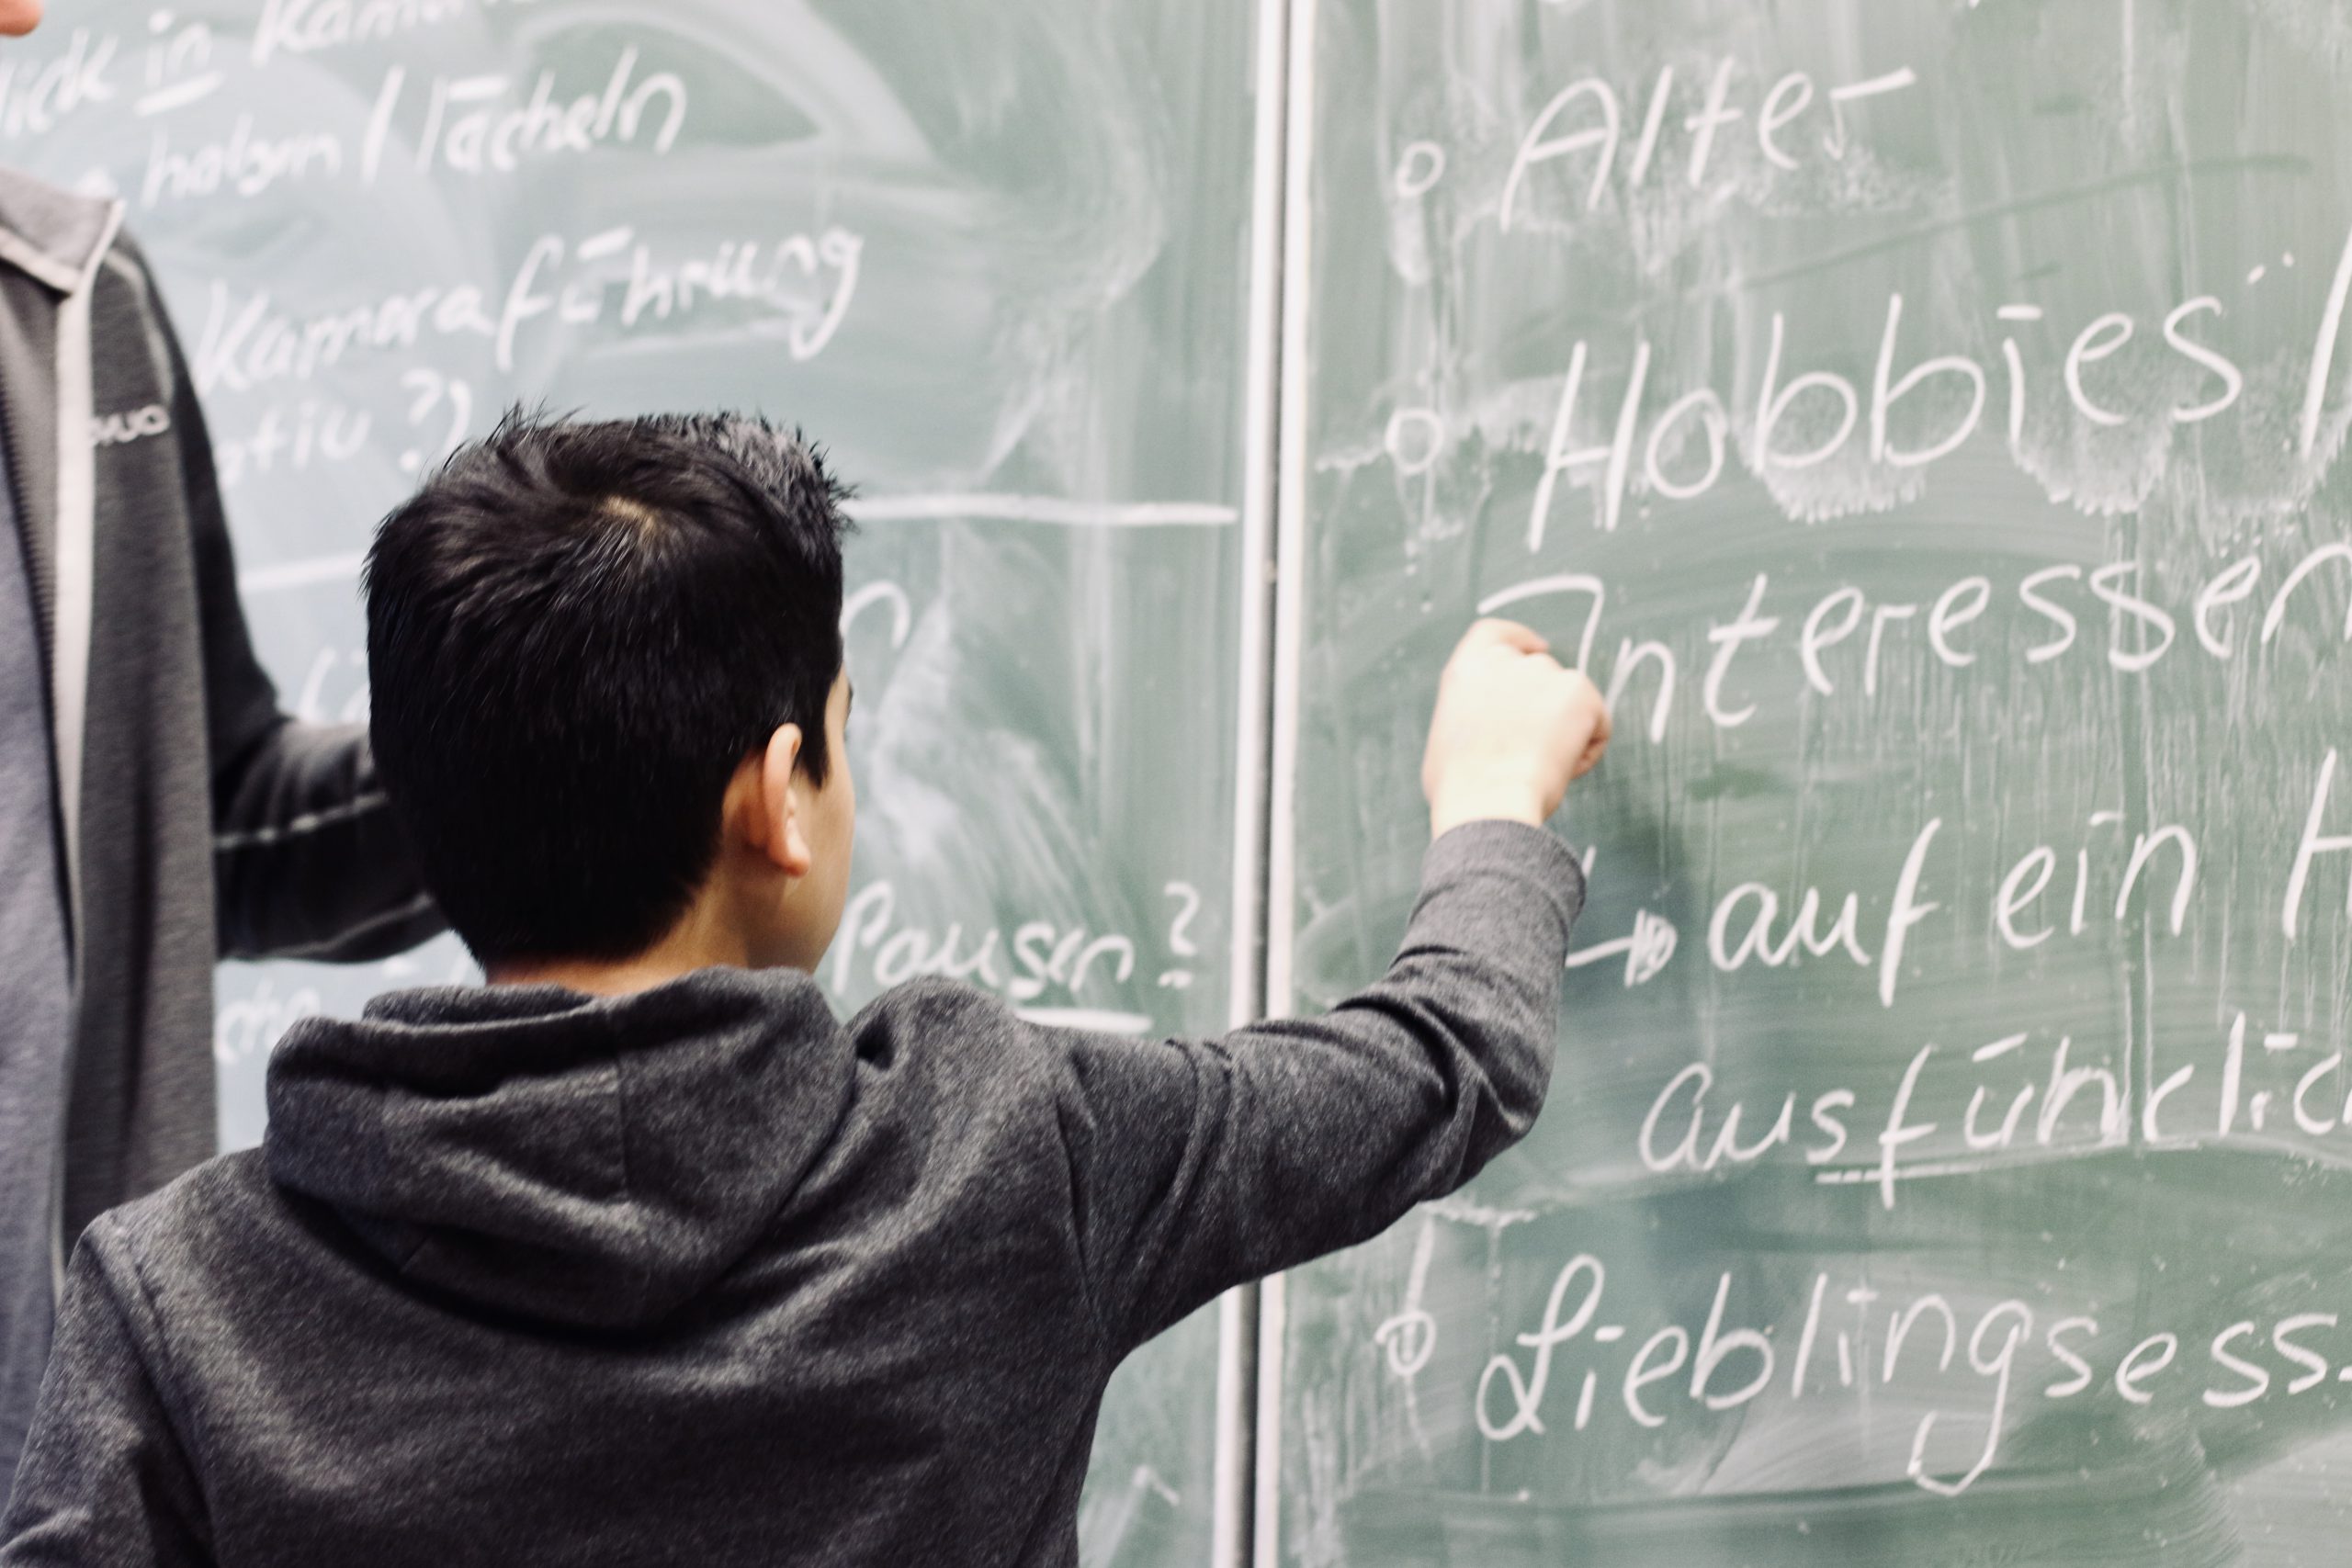 in Kam
haben / lächeln
Kameraführung
?)
Pausen?
Alter
Hobbies /
Interessen
→ auf ein H
ausführlic
Lieblingsess